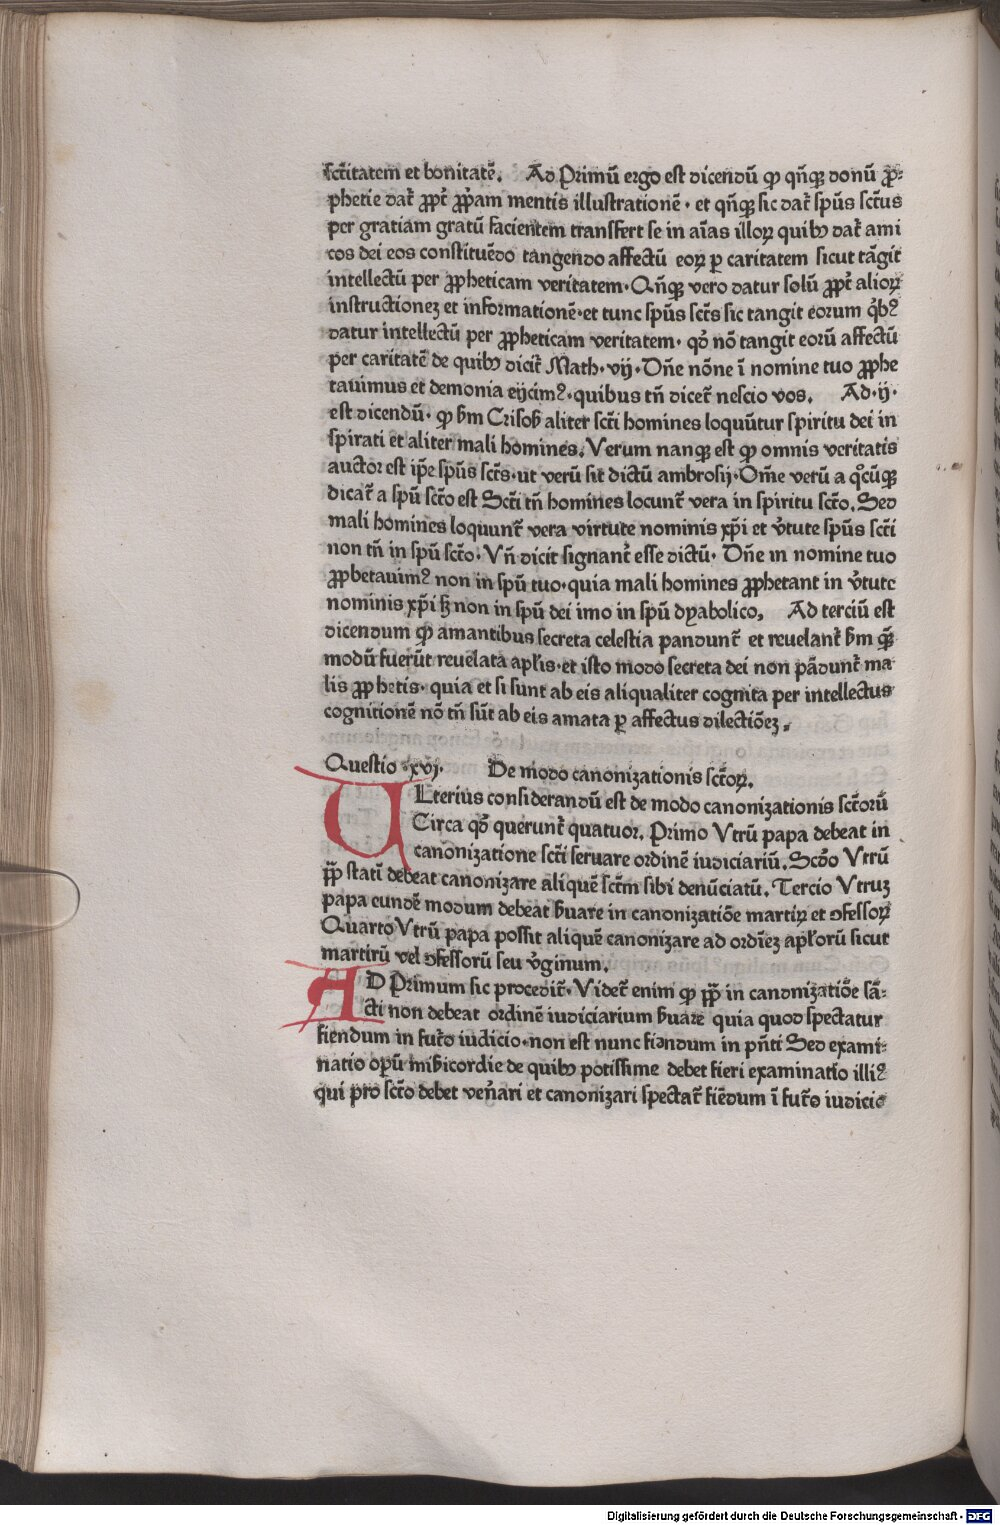 sctītatem et bonitatē. Ad Primū ergo est dicendū ꝙ qñqꝫ donū ꝓ-
phetie dat᷑ ꝓpt᷑ ꝓpriam mentis illustrationē · et qñqꝫ sic dat᷑ spūs sctūs
per gratiam gratū facientem transfert se in aīas illoꝝ quibꝰ dat᷑ ami
cos dei eos constituēdo tangendo affectū eoꝝ ꝑ caritatem sicut tāgit
intellectū per ꝓpheticam veritatem · Qñqꝫ vero datur solū ꝓpt᷑ alioꝝ
instructionez et informationē · et tunc spūs sctūs sic tangit eorum qͥbꝰ
datur intellectū per ꝓpheticam veritatem · qꝙ nō tangit eorū affectū
per caritatē de quibꝰ dicit᷑ Math · vij · Dñe nōne ī nomine tuo ꝓphe
tauimus et demonia eijcimꝰ · quibus tñ dicet᷑ nescio vos. Ad · ij ·
est dicendū · ꝙ ẜm Crisoß aliter sctī homines loquūtur spiritu dei in
spirati et aliter mali homines. Verum nanqꝫ est ꝙ omnis veritatis
auctor est ip̄e spūs sctūs · ut verū sit dictū ambrosij · Om̄e verū a qͦcūqꝫ
dicat᷑ a spū sctō est Sctī tñ homines locunt᷑ vera in spiritu sctō. Sed
mali homines loquunt᷑ vera virtute nominis xp̄i et v̓tute spūs sctī
non tñ in spū sctō · Vñ dicit signant᷑ esse dictū · Dñe in nomine tuo
ꝓphetauimꝰ non in spū tuo · quia mali homines ꝓphetant in v̓tute
nominis xp̄i sꝫ non in spū dei imo in spū dyabolico, Ad terciū est
dicendum ꝙ amantibus secreta celestia pandunt᷑ et reuelant᷑ ẜm quē
modū fuerūt reuelata apl̄is · et isto modo secreta dei non pādunt᷑ ma
lis ꝓphetis · quia et si sunt ab eis aliqualiter cognita per intellectus
cognitionē nō tñ sūt ab eis amata ꝑ affectus dilectiōez.
Questio · xvj · De modo canonizationis sctōꝝ.
Ulterius considerandū est de modo canonizationis sctōrū
Circa qꝙ querunt᷑ quatuor. Primo Vtrū papa debeat in
canonizatione sctī seruare ordinē iudiciariū. Scdo Vtrū
pp̄ statī debeat canonizare aliquē sctm̄ sibi denūciatū. Tercio Vtruz
papa eundē modum debeat ẜuare in canonizatiōe martiꝝ et ꝯfessoꝝ
Quarto Vtrū papa possit aliquē canonizare ad ordīez apl̄orū sicut
martirū vel ꝯfessorū seu v̓ginum.
AD Primum sic procedit᷑ · Videt᷑ enim ꝙ pp̄ in canonizatiōe sā-
cti non debeat ordinē iudiciarium ẜuare quia quod spectatur
fiendum in fut᷑o iudicio · non est nunc fiendum in pñti Sed exami-
natio op̄ū mīẜicordie de quibꝰ potissime debet fieri examinatio illiꝰ
qui pro sctō debet ven̄ari et canonizari spectat᷑ fiēdum ī fut᷑o iudicio
Digitalisierung gefördert durch die Deutsche Forschungsgemeinschaft - DFG